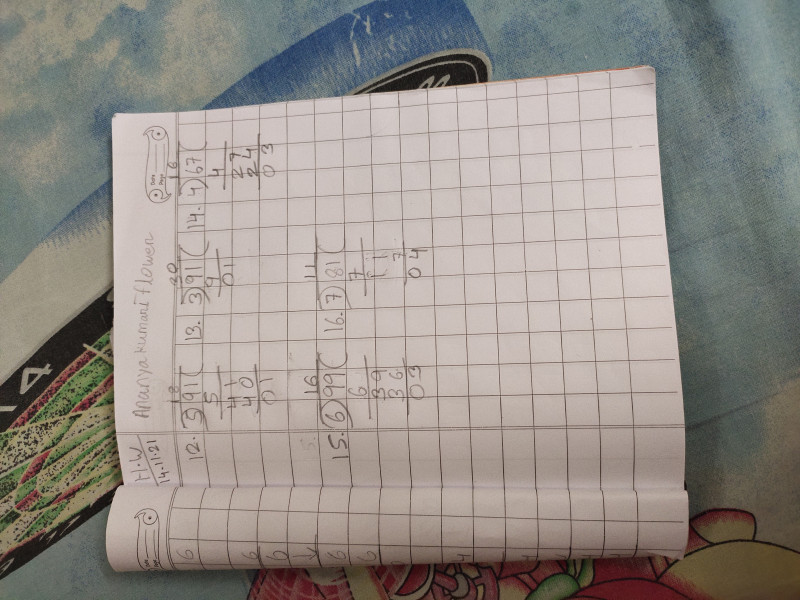 Date
Page
H.W
14.11.21
Ananya kumari flower
18
12. 5)91(
5
41
40
01
30
13. 3)91(
9
01
16
14. 4)67(
4
27
24
03
16
15. 6)99(
6
39
36
03
11
16. 7)81(
7
11
7
04
6
6
6
6